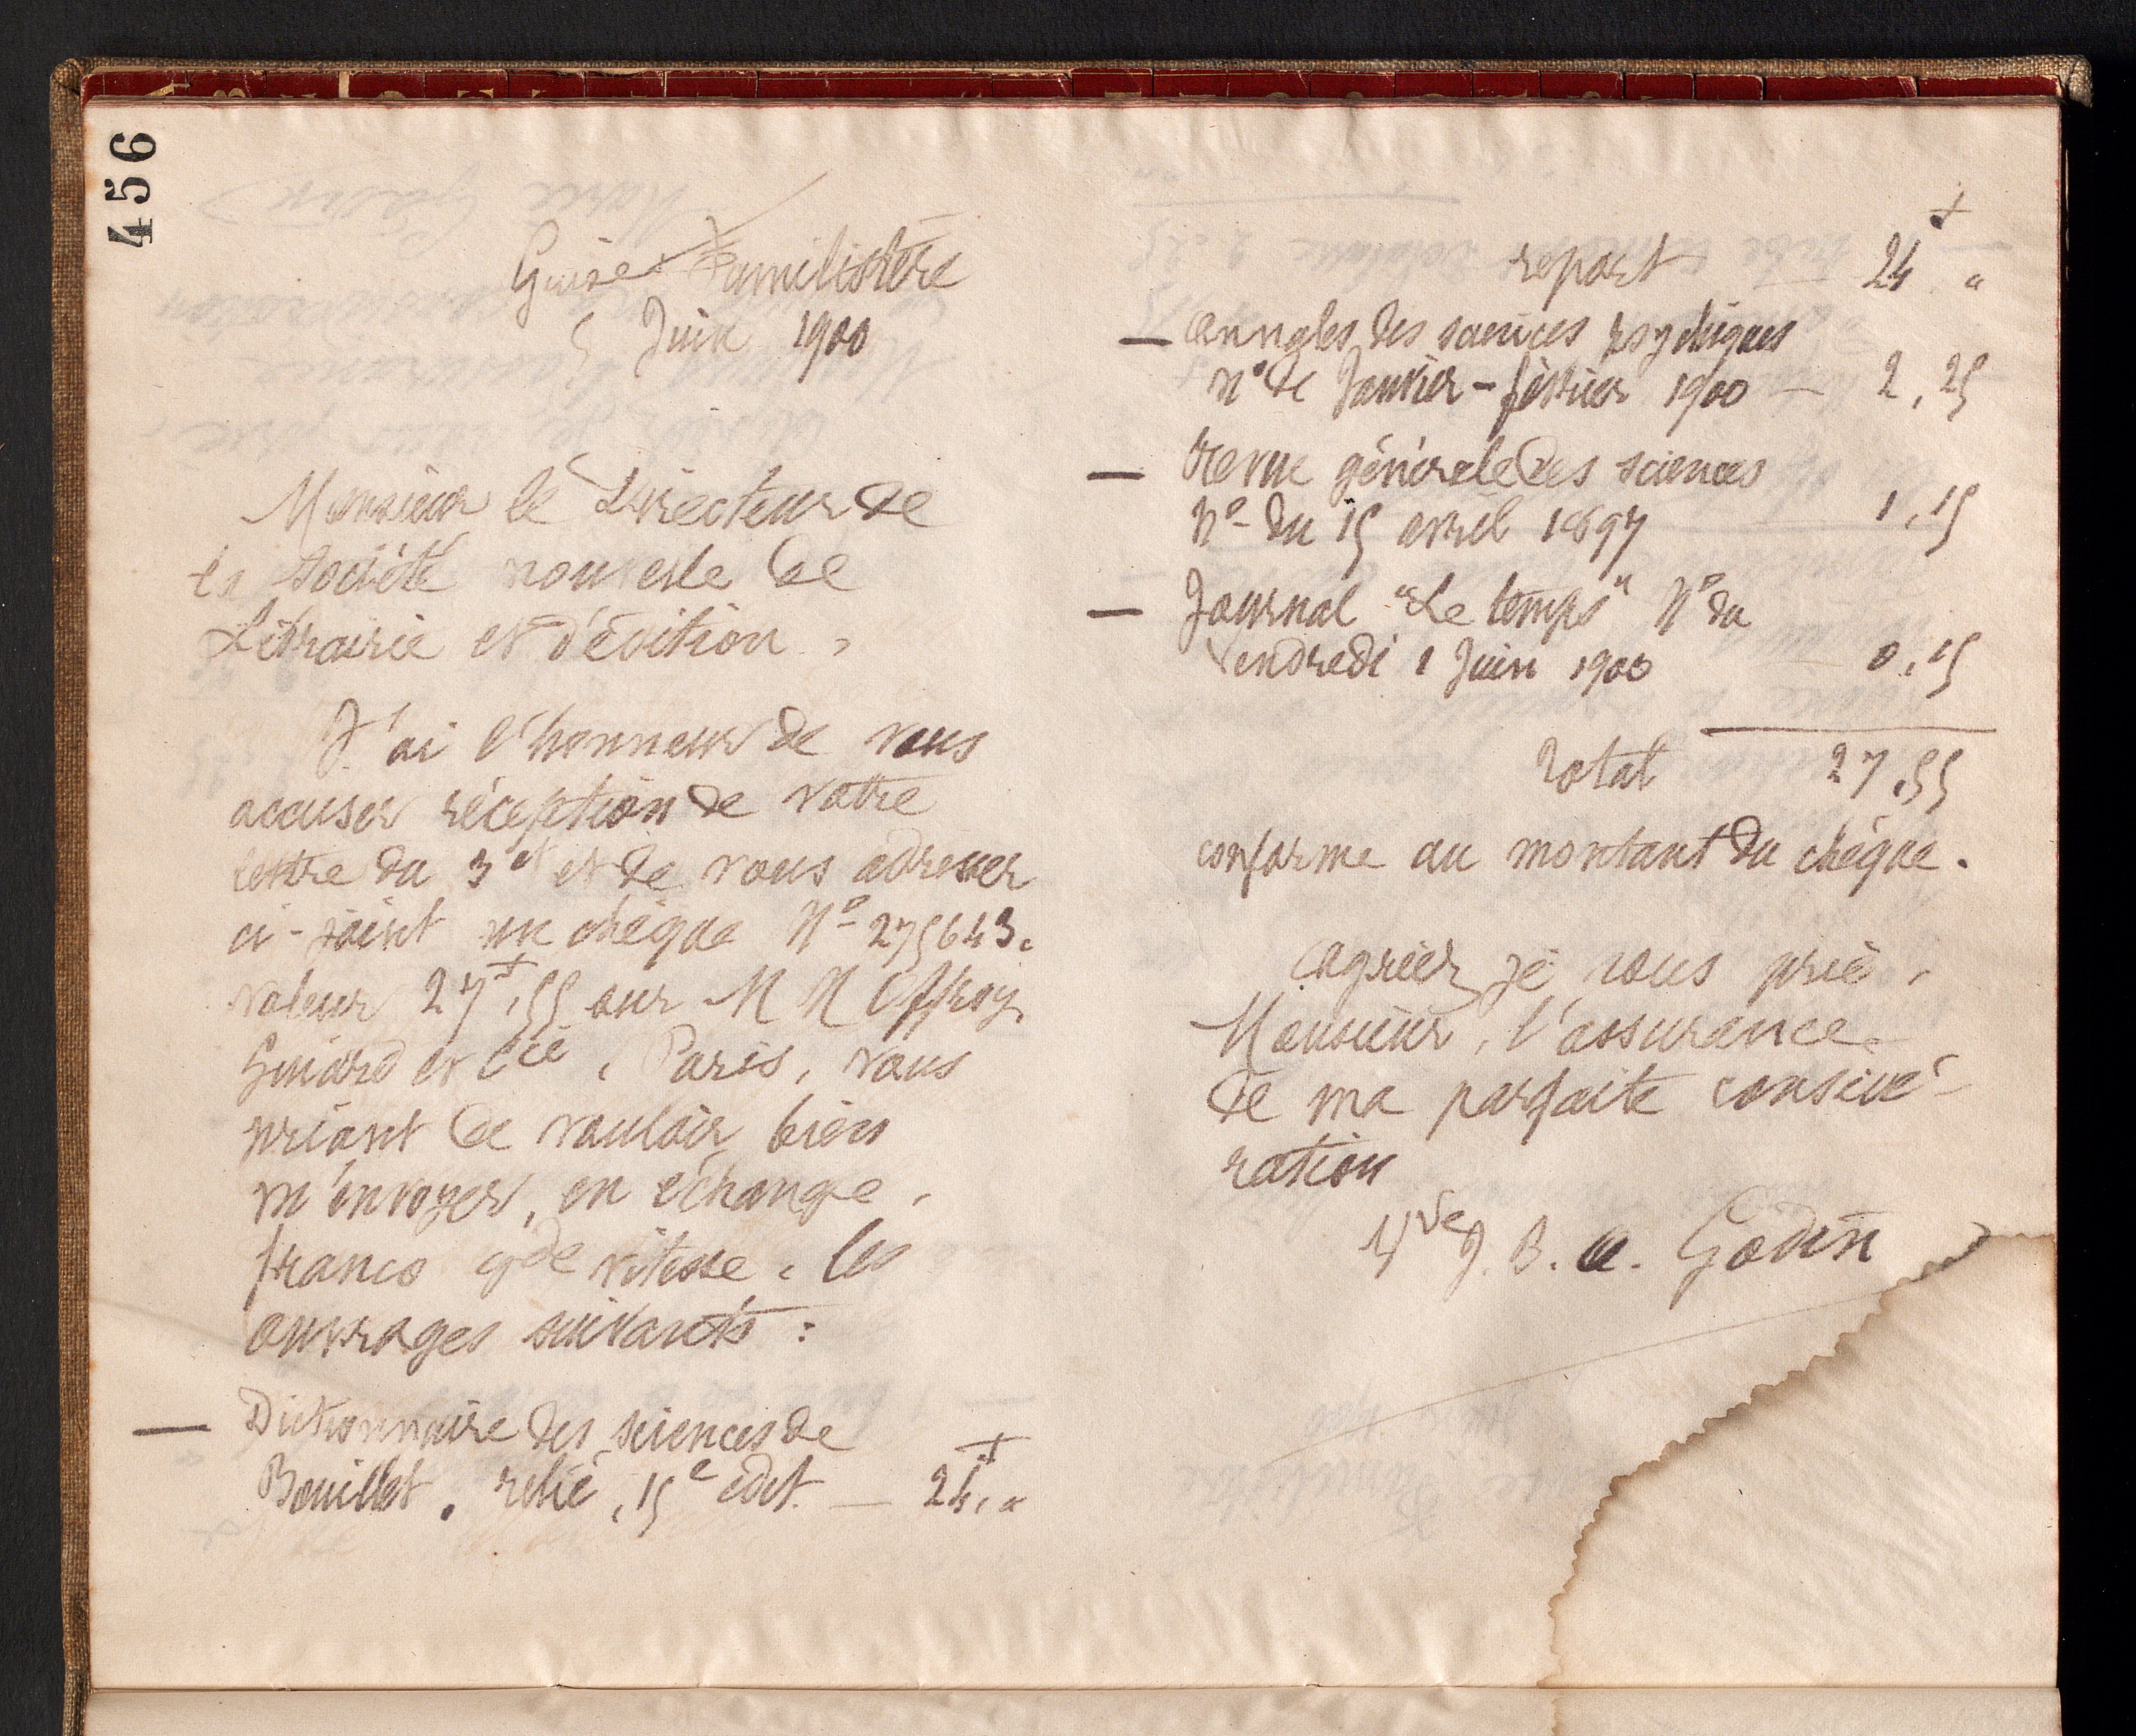 456
Guise Familistère
5 Juin 1900
Monsieur le Directeur de
la Société nouvelle de
Librairie et d'édition,
J'ai l'honneur de vous
accuser réception de votre
lettre du 3 et et de vous adresser
ci-joint un chèque N° 275643.
valeur 27f,55 sur MM Offroy,
Guiard et Cie, Paris, vous
priant de vouloir bien
m'envoyer, en échange,
franco gde vitesse, les
ouvrages suivants :
— Dictionnaire des sciences de
Bouillet. relié, 15e édit. — 24f, "
report 24f "
— Annales des sciences psychiques
n° de Janvier-février 1900 — 2,25
— Revue générale des sciences
N° du 15 avril 1897 1,15
— Journal "Le temps" N° du
Vendredi 1 Juin 1900 0,15
Total 27,55
conforme au montant du chèque.
Agréer, je vous prie,
Monsieur, l'assurance
de ma parfaite considé-
ration
Vve J. B. A. Godin